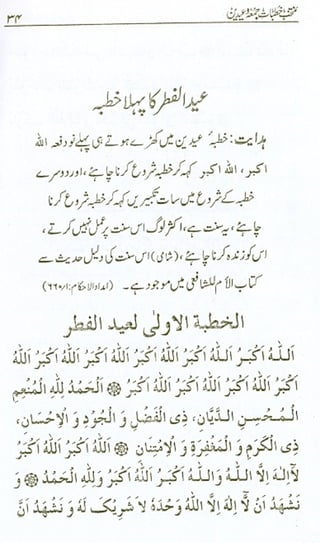 ۳۴ منتخب خطبات جمعہ و عیدین
عید الفطر کا پہلا خطبہ
ہدایت: خطبۂ عیدین میں کھڑے ہوتے ہی پہلے نو دفعہ اللہ
اکبر، اللہ اکبر کہہ کر خطبہ شروع کرنا چاہئے، اور دوسرے
خطبہ کے شروع میں سات تکبیریں کہہ کر خطبہ شروع کرنا
چاہئے، یہ سنت ہے، اکثر لوگ اس سنت پر عمل نہیں کرتے،
اس کو زندہ کرنا چاہئے، (شامی) اس سنت کی دلیل حدیث سے
کتاب الأم للشافعی میں موجود ہے۔ (امداد الاحکام: ۱/۶۶۰)
الخطبة الاولىٰ لعيد الفطر
اَللهُ اَكْبَرُ اَللهُ اَكْبَرُ اَللهُ اَكْبَرُ اَللهُ اَكْبَرُ اَللهُ اَكْبَرُ اَللهُ
اَكْبَرُ اَللهُ اَكْبَرُ اَللهُ اَكْبَرُ اَللهُ اَكْبَرُ ۞ اَلْحَمْدُ لِلّٰهِ الْمُنْعِمِ
الْمُحْسِنِ الدَّيَّانِ، ذِي الْفَضْلِ وَ الْجُوْدِ وَ الْاِحْسَانِ،
ذِي الْكَرَمِ وَ الْمَغْفِرَةِ وَ الْاِمْتِنَانِ ۞ اَللهُ اَكْبَرُ اَللهُ اَكْبَرُ
لَآ اِلٰهَ اِلَّا اللهُ وَاللهُ اَكْبَرُ اَللهُ اَكْبَرُ وَلِلّٰهِ الْحَمْدُ ۞ وَ
نَشْهَدُ اَنْ لَّآ اِلٰهَ اِلَّا اللهُ وَحْدَهٗ لَا شَرِيْكَ لَهٗ وَ نَشْهَدُ اَنَّ